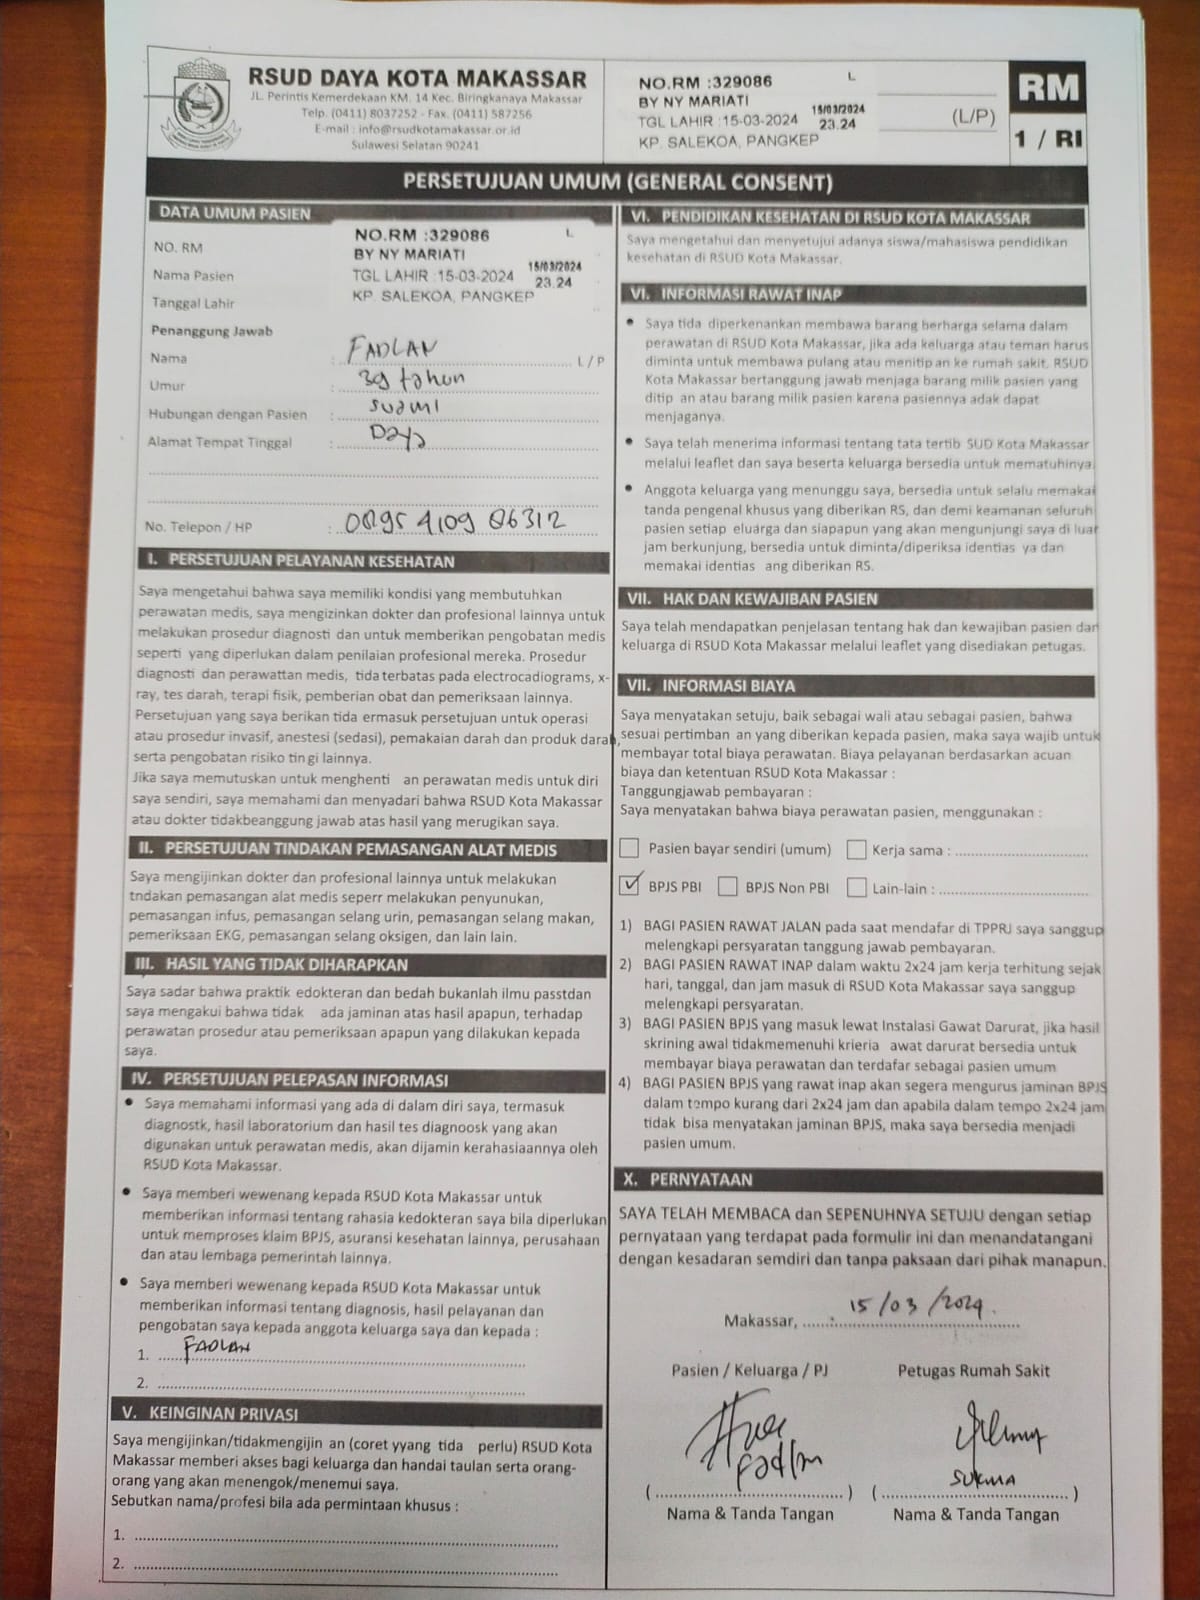 RSUD DAYA KOTA MAKASSAR
JL. Perintis Kemerdekaan KM. 14 Kec. Biringkanaya Makassar
Telp. (0411) 8037252 - Fax. (0411) 587256
E-mail : info@rsudkotamakassar.or.id
Sulawesi Selatan 90241
NO.RM :329086 L
BY NY MARIATI
TGL LAHIR :15-03-2024 15/03/2024 23.24
KP. SALEKOA, PANGKEP
(L/P)
RM
1 / RI
PERSETUJUAN UMUM (GENERAL CONSENT)
DATA UMUM PASIEN
NO. RM
Nama Pasien
Tanggal Lahir
NO.RM :329086 L
BY NY MARIATI
TGL LAHIR :15-03-2024 15/03/2024 23.24
KP. SALEKOA, PANGKEP
Penanggung Jawab
Nama : FADLAN L / P
Umur : 39 tahun
Hubungan dengan Pasien : suami
Alamat Tempat Tinggal : Daya
No. Telepon / HP : 0895 4109 06312
I. PERSETUJUAN PELAYANAN KESEHATAN
Saya mengetahui bahwa saya memiliki kondisi yang membutuhkan
perawatan medis, saya mengizinkan dokter dan profesional lainnya untuk
melakukan prosedur diagnosti dan untuk memberikan pengobatan medis
seperti yang diperlukan dalam penilaian profesional mereka. Prosedur
diagnosti dan perawattan medis, tida terbatas pada electrocadiograms, x-
ray, tes darah, terapi fisik, pemberian obat dan pemeriksaan lainnya.
Persetujuan yang saya berikan tida ermasuk persetujuan untuk operasi
atau prosedur invasif, anestesi (sedasi), pemakaian darah dan produk darah,
serta pengobatan risiko tin gi lainnya.
Jika saya memutuskan untuk menghenti an perawatan medis untuk diri
saya sendiri, saya memahami dan menyadari bahwa RSUD Kota Makassar
atau dokter tidakbeanggung jawab atas hasil yang merugikan saya.
II. PERSETUJUAN TINDAKAN PEMASANGAN ALAT MEDIS
Saya mengijinkan dokter dan profesional lainnya untuk melakukan
tndakan pemasangan alat medis seperr melakukan penyunukan,
pemasangan infus, pemasangan selang urin, pemasangan selang makan,
pemeriksaan EKG, pemasangan selang oksigen, dan lain lain.
III. HASIL YANG TIDAK DIHARAPKAN
Saya sadar bahwa praktik edokteran dan bedah bukanlah ilmu passtdan
saya mengakui bahwa tidak ada jaminan atas hasil apapun, terhadap
perawatan prosedur atau pemeriksaan apapun yang dilakukan kepada
saya.
IV. PERSETUJUAN PELEPASAN INFORMASI
• Saya memahami informasi yang ada di dalam diri saya, termasuk
diagnostk, hasil laboratorium dan hasil tes diagnoosk yang akan
digunakan untuk perawatan medis, akan dijamin kerahasiaannya oleh
RSUD Kota Makassar.
• Saya memberi wewenang kepada RSUD Kota Makassar untuk
memberikan informasi tentang rahasia kedokteran saya bila diperlukan
untuk memproses klaim BPJS, asuransi kesehatan lainnya, perusahaan
dan atau lembaga pemerintah lainnya.
• Saya memberi wewenang kepada RSUD Kota Makassar untuk
memberikan informasi tentang diagnosis, hasil pelayanan dan
pengobatan saya kepada anggota keluarga saya dan kepada :
1. FADLAN
2.
V. KEINGINAN PRIVASI
Saya mengijinkan/tidakmengijin an (coret yyang tida perlu) RSUD Kota
Makassar memberi akses bagi keluarga dan handai taulan serta orang-
orang yang akan menengok/menemui saya.
Sebutkan nama/profesi bila ada permintaan khusus :
1.
2.
VI. PENDIDIKAN KESEHATAN DI RSUD KOTA MAKASSAR
Saya mengetahui dan menyetujui adanya siswa/mahasiswa pendidikan
kesehatan di RSUD Kota Makassar.
VI. INFORMASI RAWAT INAP
• Saya tida diperkenankan membawa barang berharga selama dalam
perawatan di RSUD Kota Makassar, jika ada keluarga atau teman harus
diminta untuk membawa pulang atau menitip an ke rumah sakit. RSUD
Kota Makassar bertanggung jawab menjaga barang milik pasien yang
ditip an atau barang milik pasien karena pasiennya adak dapat
menjaganya.
• Saya telah menerima informasi tentang tata tertib SUD Kota Makassar
melalui leaflet dan saya beserta keluarga bersedia untuk mematuhinya.
• Anggota keluarga yang menunggu saya, bersedia untuk selalu memakai
tanda pengenal khusus yang diberikan RS, dan demi keamanan seluruh
pasien setiap eluarga dan siapapun yang akan mengunjungi saya di luar
jam berkunjung, bersedia untuk diminta/diperiksa identias ya dan
memakai identias ang diberikan RS.
VII. HAK DAN KEWAJIBAN PASIEN
Saya telah mendapatkan penjelasan tentang hak dan kewajiban pasien dan
keluarga di RSUD Kota Makassar melalui leaflet yang disediakan petugas.
VII. INFORMASI BIAYA
Saya menyatakan setuju, baik sebagai wali atau sebagai pasien, bahwa
sesuai pertimban an yang diberikan kepada pasien, maka saya wajib untuk
membayar total biaya perawatan. Biaya pelayanan berdasarkan acuan
biaya dan ketentuan RSUD Kota Makassar :
Tanggungjawab pembayaran :
Saya menyatakan bahwa biaya perawatan pasien, menggunakan :
☐ Pasien bayar sendiri (umum) ☐ Kerja sama :
☑ BPJS PBI ☐ BPJS Non PBI ☐ Lain-lain :
1) BAGI PASIEN RAWAT JALAN pada saat mendafar di TPPRJ saya sanggup
melengkapi persyaratan tanggung jawab pembayaran.
2) BAGI PASIEN RAWAT INAP dalam waktu 2x24 jam kerja terhitung sejak
hari, tanggal, dan jam masuk di RSUD Kota Makassar saya sanggup
melengkapi persyaratan.
3) BAGI PASIEN BPJS yang masuk lewat Instalasi Gawat Darurat, jika hasil
skrining awal tidakmemenuhi krieria awat darurat bersedia untuk
membayar biaya perawatan dan terdafar sebagai pasien umum
4) BAGI PASIEN BPJS yang rawat inap akan segera mengurus jaminan BPJS
dalam tempo kurang dari 2x24 jam dan apabila dalam tempo 2x24 jam
tidak bisa menyatakan jaminan BPJS, maka saya bersedia menjadi
pasien umum.
X. PERNYATAAN
SAYA TELAH MEMBACA dan SEPENUHNYA SETUJU dengan setiap
pernyataan yang terdapat pada formulir ini dan menandatangani
dengan kesadaran semdiri dan tanpa paksaan dari pihak manapun.
Makassar, 15/03/2024.
Pasien / Keluarga / PJ Petugas Rumah Sakit
Fadlan SUKMA
(....................) (....................)
Nama & Tanda Tangan Nama & Tanda Tangan